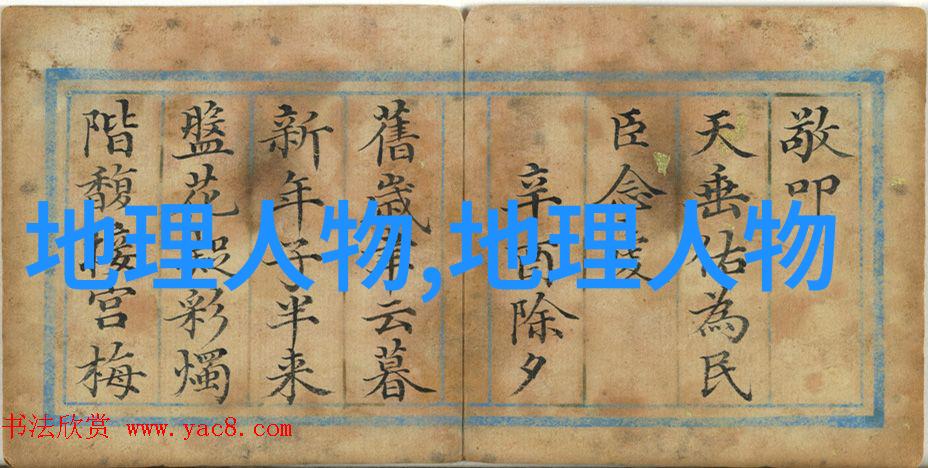 敬叩
天垂佑為民
臣念
辛酉除夕
舊歲云暮
新年子半来
盤花彩燭
階馥接宮梅
地理人物,地理人物
书法欣赏 www.yac8.com